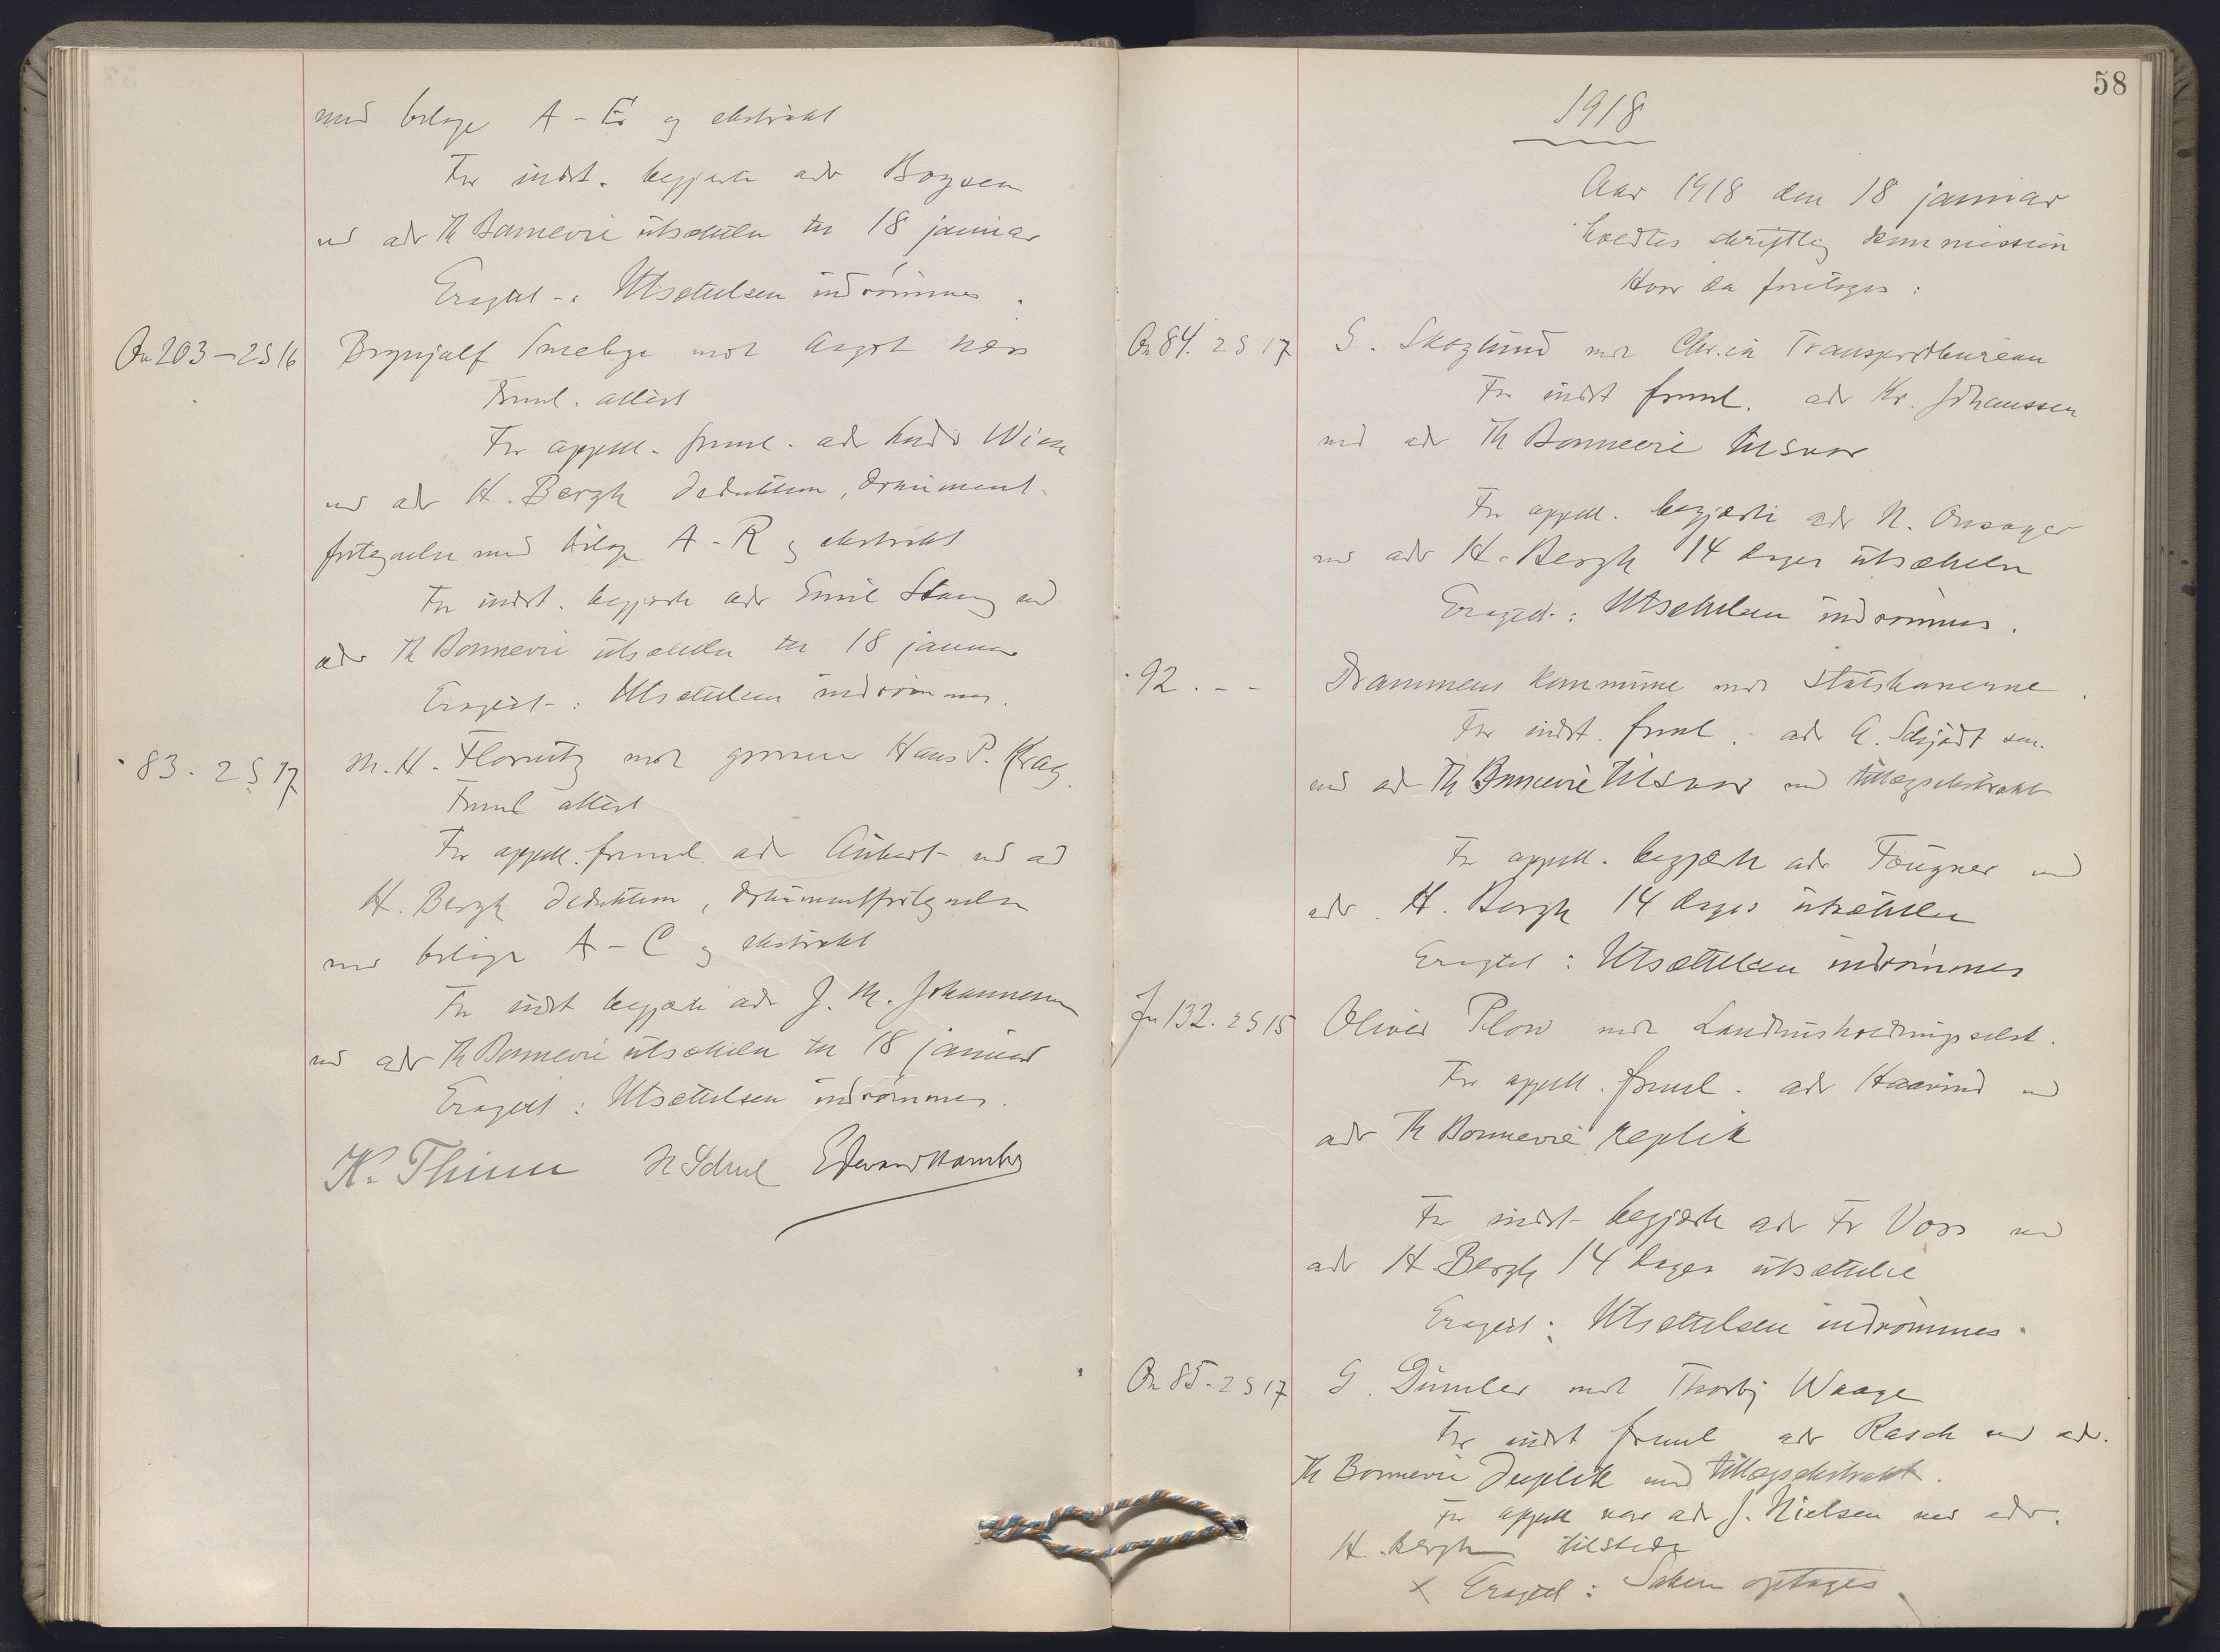 med bilage A - E og ekstrakt
For indst. begjærte adv Boysen
ved adv Th Bonnevie utsættelse til 18 januar
Eragtet -: Utsættelsen indrømmes.
On 203 - 2 S 16 Brynjulf mot Aagot Næss
Fruml. attest
For appell. fruml. adv Wiese
ved adv H. Bergh deduktion, dokument-
fortegnelse med bilage A - R og ekstrakt
For indst. begjærte adv Emil Stang ved
adv Th Bonnevie utsættelse til 18 januar
Eragtet -: Utsættelsen indrømmes.
83. 2 S 17 M. H. mot grosserer Hans P. Krag.
Fruml attest
For appell. fruml. adv Aubert ved ad
H. Bergh deduktion, dokumentfortegnelse
med bilage A - C og ekstrakt
For indst begjærte adv J. M. Johannesen
ved adv Th Bonnevie utsættelse til 18 januar
Eragtet : Utsættelsen indrømmes.
K. Thinn N Scheel Edvard Hambro
58
1918
Aar 1918 den 18 januar
holdtes skriftlig kommission
Hvor da foretages :
On 84. 2 S 17 S. Skoglund mot Chr.ia Transportbureau
For indst fruml. adv Kr. Johanssen
ved adv Th Bonnevie tilsvar
For appell. begjærte adv N. Onsager
ved adv H. Bergh 14 dages utsættelse
Eragtet -: Utsættelsen indrømmes.
92. - - Drammens kommune mot statsbanerne.
For indst. fruml. adv A. Schjødt sen.
ved adv Th Bonnevie tilsvar med tillægsekstrakt
For appell. begjærte adv Fougner ved
adv. H. Bergh 14 dages utsættelse
Eragtet : Utsættelsen indrømmes
Jn 132. 2 S 15 Oliver Plow mot Landhusholdningsselsk.
For appell. fruml. adv Haavind ved
adv Th Bonnevie replik
For indst - begjærte adv Fr Voss ved
adv H. Bergh 14 dages utsættelse
Eragtet : Utsættelsen indrømmes.
On 85 - 2 S 17 G. mot Thorbj Waage
For indst fruml adv Rasch ved adv.
Th Bonnevie duplik med tillægsekstrakt.
For appell var adv J. Nielsen ved adv.
H. Bergh tilstede
x Eragtet : Saken optages.